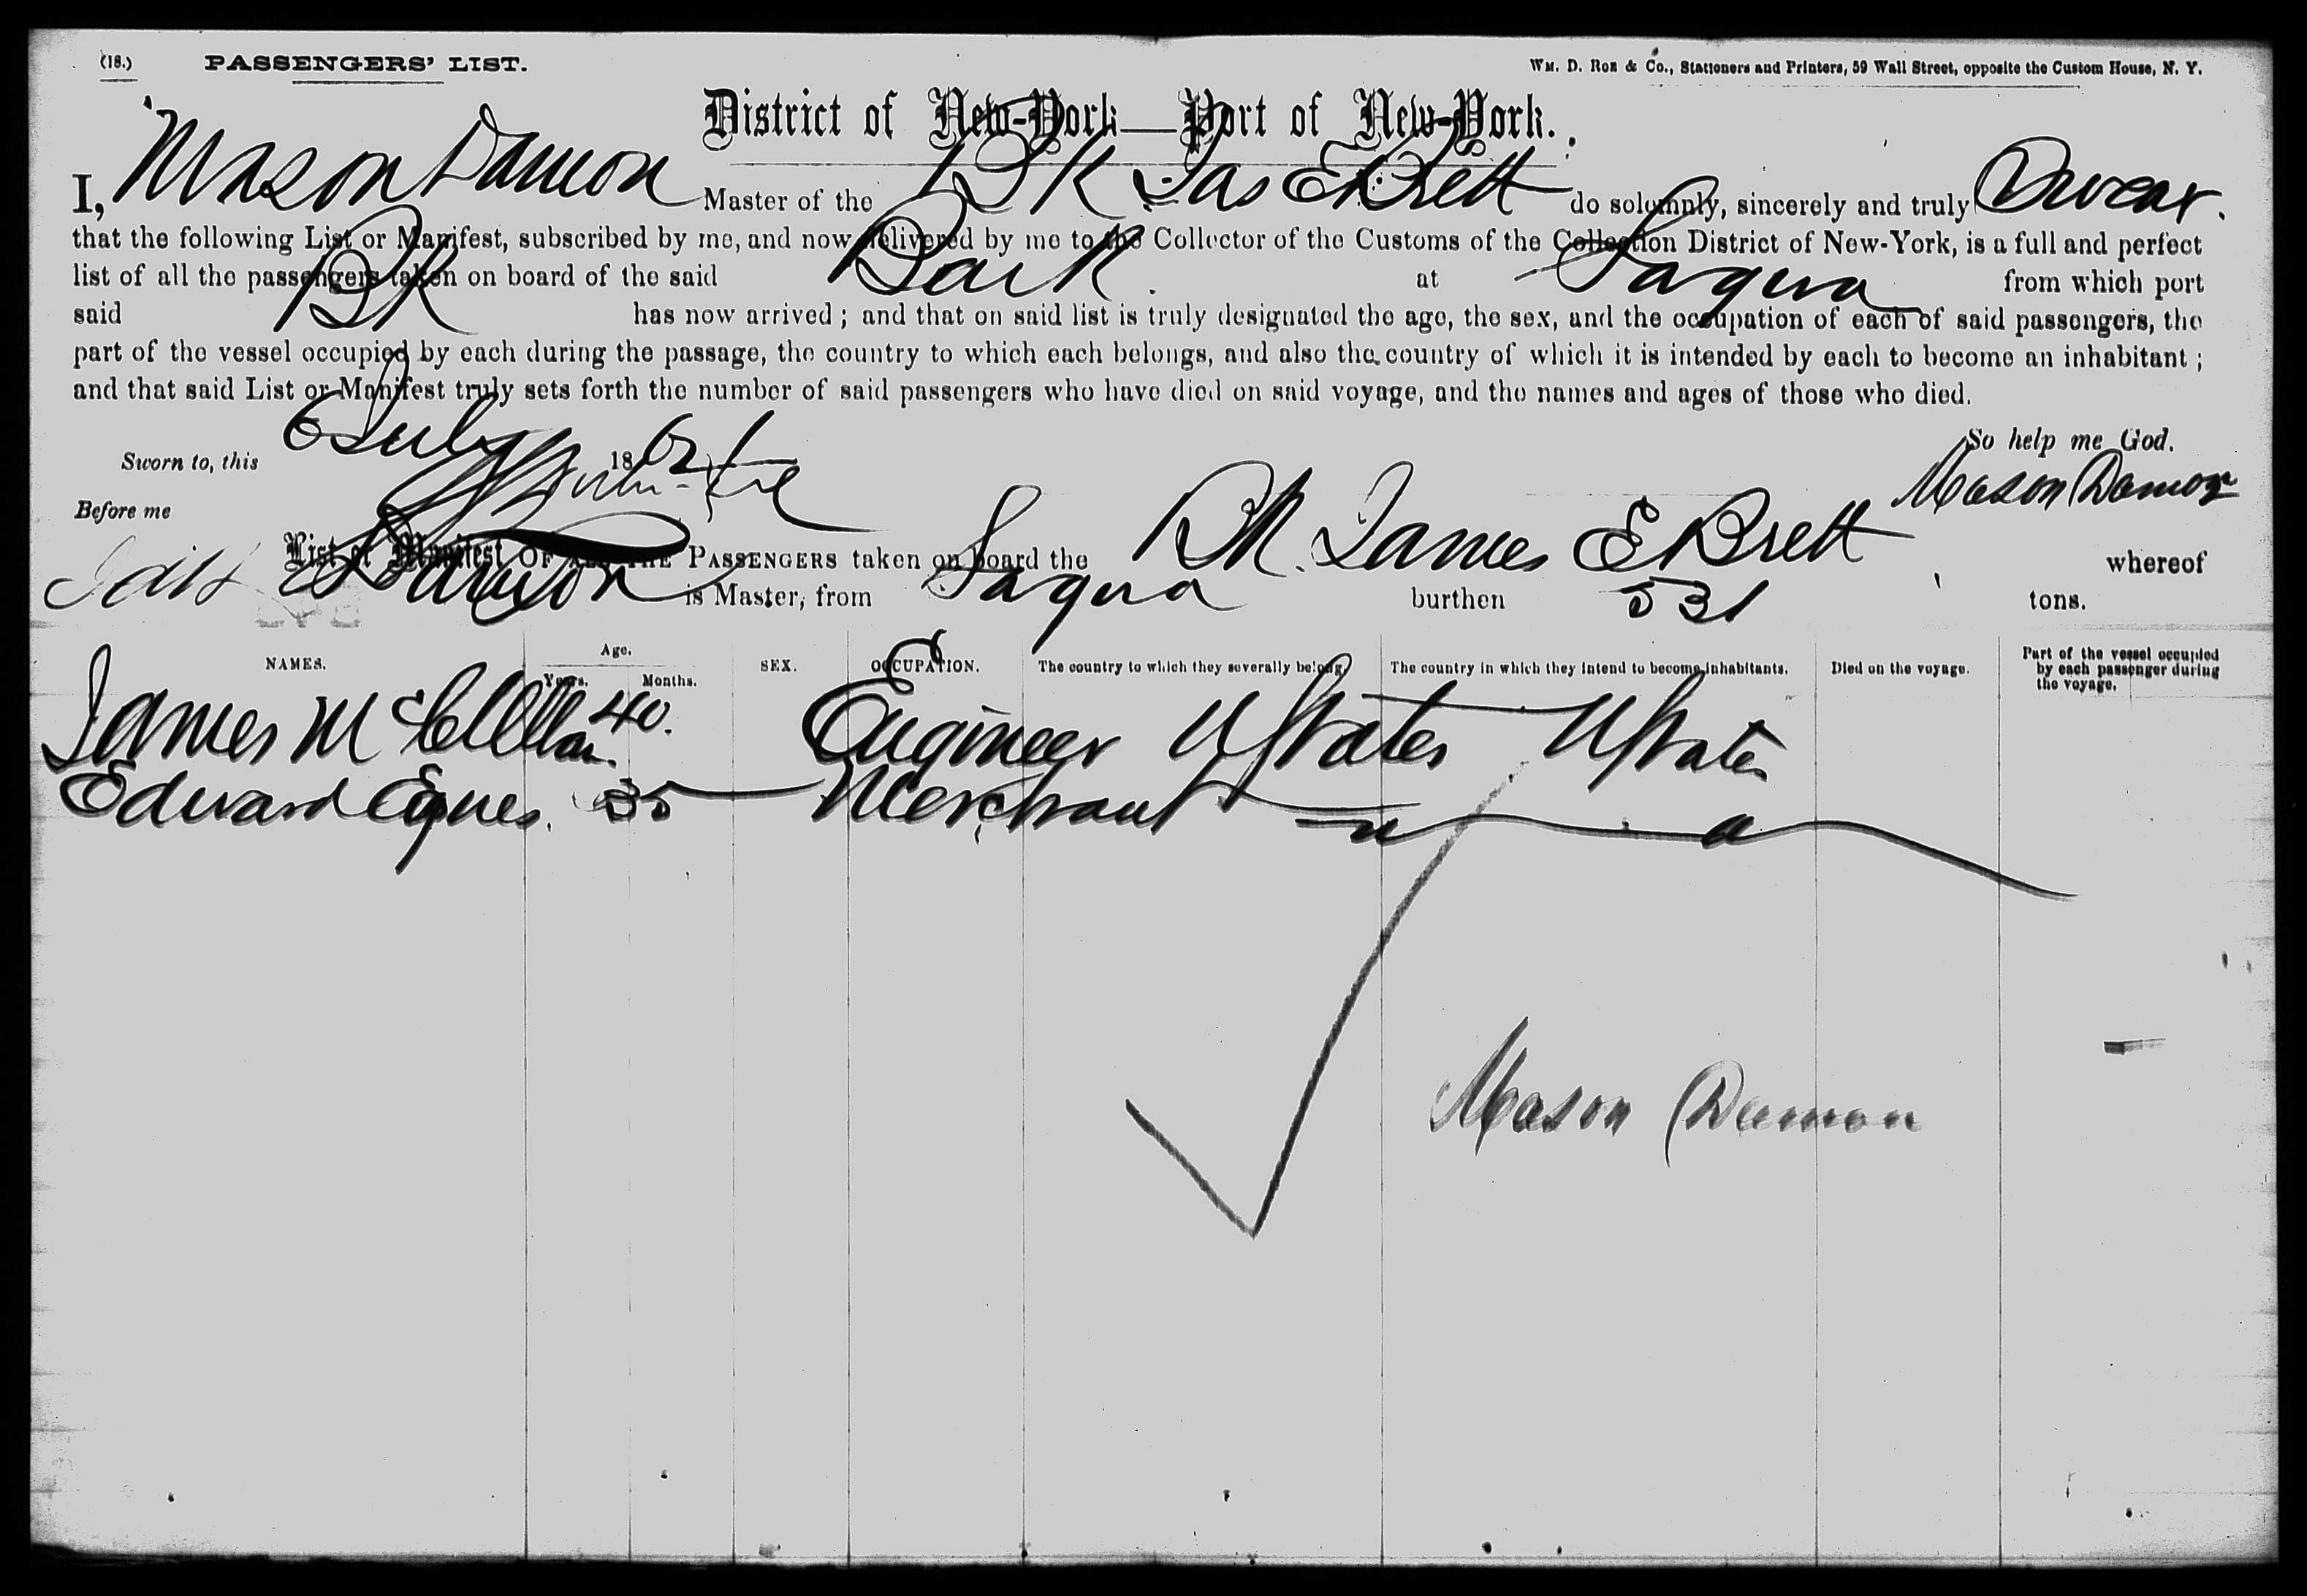 (18.) PASSENGERS' LIST. Wm. D. Roe & Co., Stationers and Printers, 59 Wall Street, opposite the Custom House, N. Y.
District of New-York—Port of New-York.
I, Mason Damon Master of the BK Jas E Brett do solemnly, sincerely and truly Swear.
that the following List or Manifest, subscribed by me, and now delivered by me to the Collector of the Customs of the Collection District of New-York, is a full and perfect
list of all the passengers taken on board of the said Bark at Sagua from which port
said BK has now arrived; and that on said list is truly designated the age, the sex, and the occupation of each of said passengers, the
part of the vessel occupied by each during the passage, the country to which each belongs, and also the country of which it is intended by each to become an inhabitant;
and that said List or Manifest truly sets forth the number of said passengers who have died on said voyage, and the names and ages of those who died.
So help me God.
Sworn to, this 6 July 1862 Mason Damon
Before me
List or Manifest OF ALL THE PASSENGERS taken on board the BK. James E Brett whereof
Damon is Master, from Sagua burthen 531 tons.
NAMES. Age. Years. Months. SEX. OCCUPATION. The country to which they severally belong. The country in which they intend to become inhabitants. Died on the voyage. Part of the vessel occupied by each passenger during the voyage.
James McClellan. 40. Engineer UStates UStates
Edward Eques. 35 Merchant " "
Mason Damon